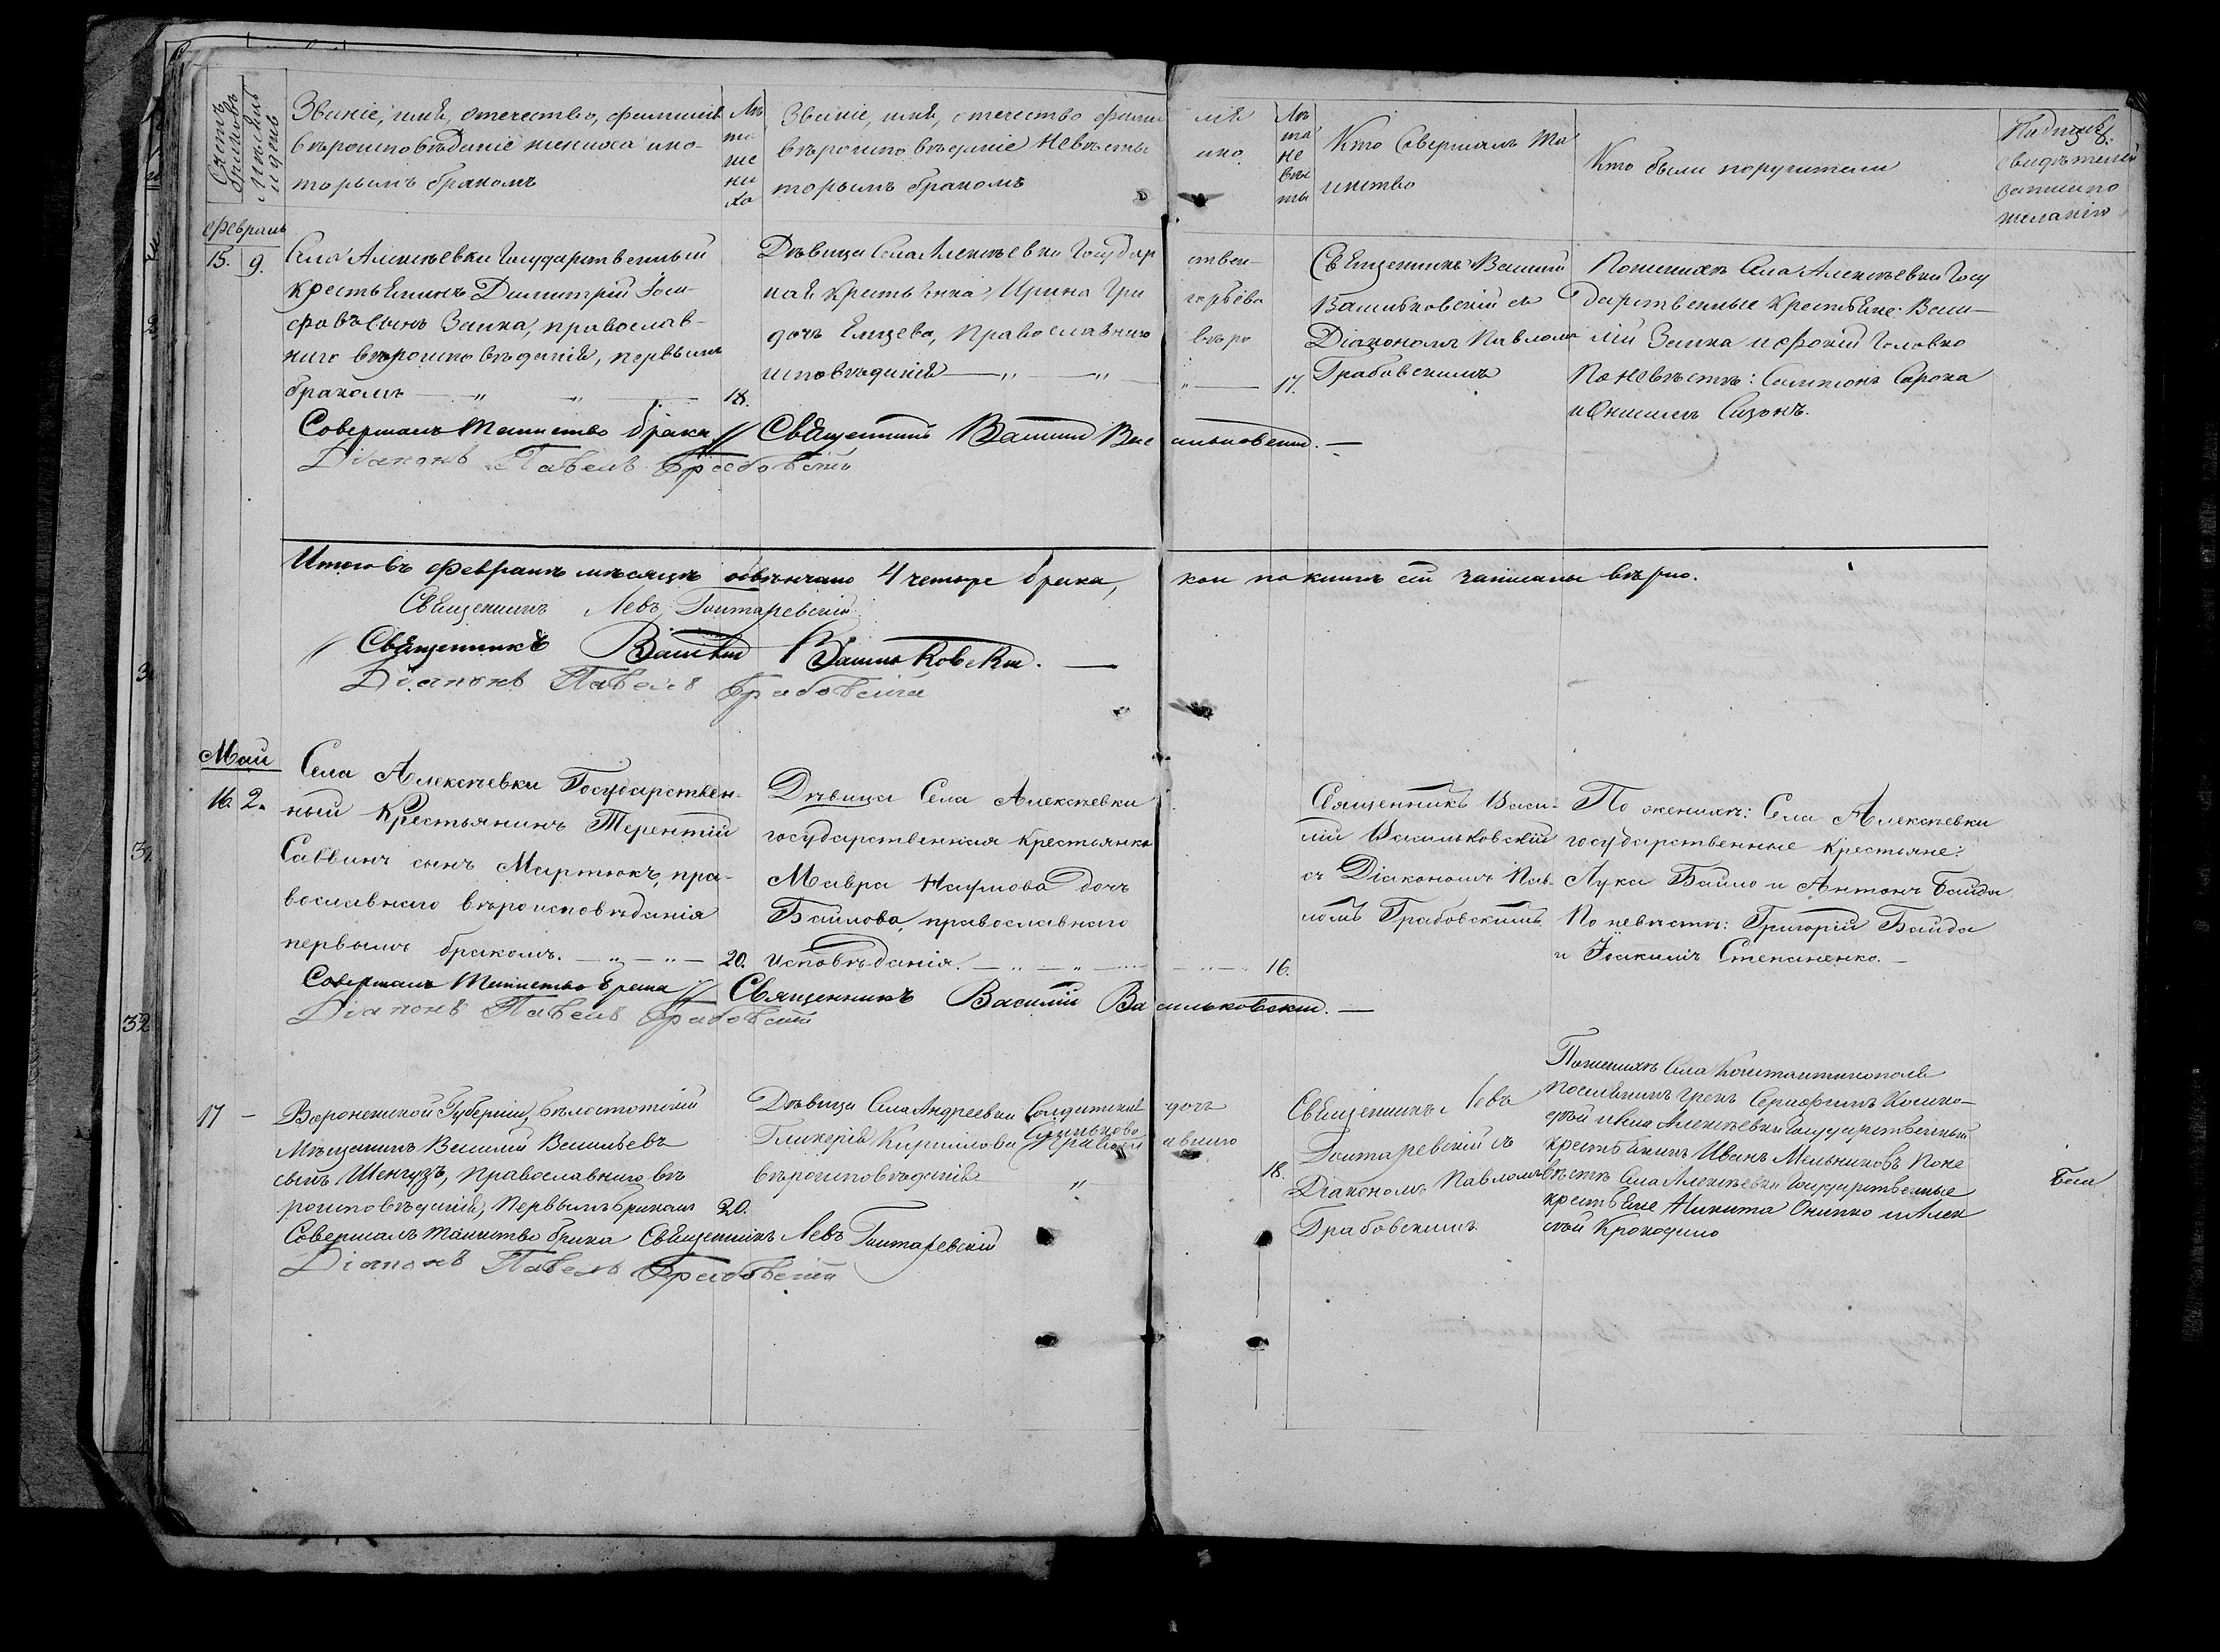 Счетъ браковъ
Мѣсяцъ и день
Званіе, имя, отечество, фамилія
вѣроисповѣданіе жениха и ко-
торымъ бракомъ
Лѣ
та
же
ни
ха
Званіе, имя, отечество фами лія
вѣроисповѣданіе невѣсты и ко
торымъ бракомъ
Лѣ
та
не
вѣс
ты
Кто совершалъ Та
инство
Кто были поручители
Подпись
свидѣтелей
записи по
желанію
Февраль
15. 9.
Села Алексѣевки Государственный
крестьянинъ Димитрій Іоси-
фовъ сынъ Заика, православ-
наго вѣроисповѣданія, первымъ
бракомъ 18.
Дѣвица Села Алексѣевки Государ ствен-
ная крестьянка, Ирина Гри горьева
дочь Ельцева, Православнаго вѣро
исповѣданія 17.
Священникъ Василій
Васильковскій съ
Діакономъ Павломъ
Грабовскимъ
По женихѣ Села Алексѣевки Госу
дарственные крестьяне: Васи-
лій Заика и Фокій Головко
По невѣстѣ: Самсонъ Сорока
и Онисимъ Сизонъ.
Совершалъ Таинство брака Священникъ Василій Васильковскій.
Діаконъ Павелъ Грабовскій
Итого въ Февралѣ мѣсяцѣ обвѣнчано 4 четыре брака, кои по книгѣ сей записаны вѣрно.
Священникъ Левъ Гонтаревскій
Священникъ Василій Васильковскій.
Діаконъ Павелъ Грабовскій
Май
16. 2.
Села Алексѣевки Государствен-
ный Крестьянинъ Терентій
Саввинъ сынъ Мартюкъ, пра-
вославнаго вѣроисповѣданія
первымъ бракомъ. 20.
Дѣвица Села Алексѣевки
государственная крестьянка
Мавра Наумова дочь
Баилова, православнаго
исповѣданія. 16.
Священникъ Васи-
лій Васильковскій
съ Діакономъ Пав-
ломъ Грабовскимъ.
По женихѣ: Села Алексѣевки
государственные крестьяне:
Лука Баило и Антонъ Байда
По невѣстѣ: Григорій Байда
и Іоакимъ Степаненко.
Совершалъ Таинство брака Священникъ Василій Васильковскій.
Діаконъ Павелъ Грабовскій
17 -
Воронежской Губерніи,
Мѣщанинъ Василій Васильевъ
сынъ Шенгузъ, Православнаго вѣ
роисповѣданія, первымъ бракомъ 20.
Дѣвица Села Андреевки Солдатская дочь
Гликерія Кириллова Сенькова Православнаго
вѣроисповѣданія 18.
Священникъ Левъ
Гонтаревскій съ
Діакономъ Павломъ
Грабовскимъ
По женихѣ Села Константинополя
поселянинъ Грекъ
и Села Алексѣевки Государственный
крестьянинъ Иванъ Мельниковъ По не
вѣстѣ Села Алексѣевки Государственные
крестьяне Никита Онипко и Алек
сѣй Крокодило
Совершалъ таинство брака Священникъ Левъ Гонтаревскій
Діаконъ Павелъ Грабовскій
32